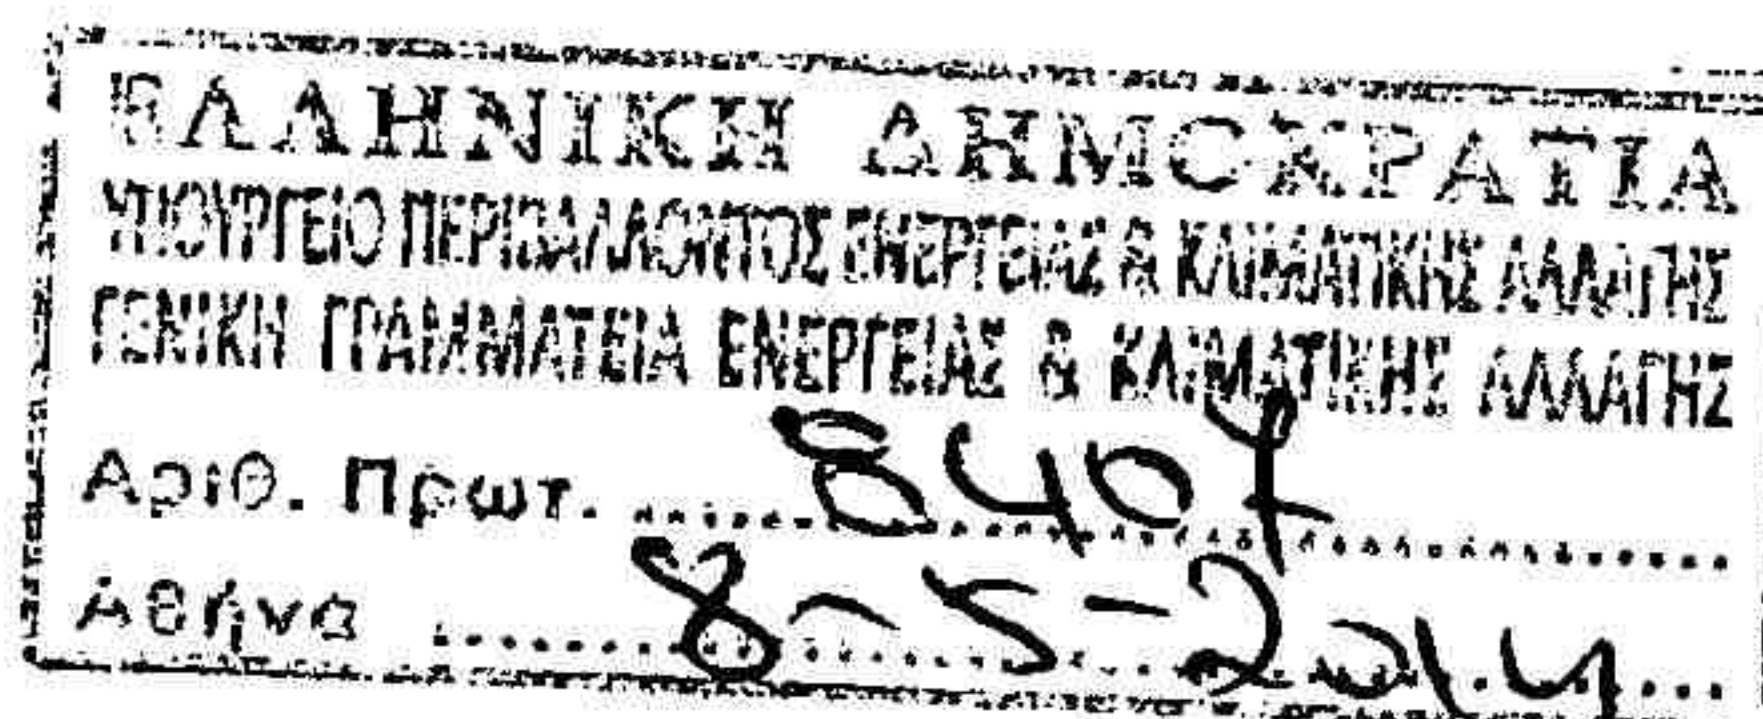 ΕΛΛΗΝΙΚΗ ΔΗΜΟΚΡΑΤΙΑ
ΥΠΟΥΡΓΕΙΟ ΠΕΡΙΒΑΛΛΟΝΤΟΣ ΕΝΕΡΓΕΙΑΣ & ΚΛΙΜΑΤΙΚΗΣ ΑΛΛΑΓΗΣ
ΓΕΝΙΚΗ ΓΡΑΜΜΑΤΕΙΑ ΕΝΕΡΓΕΙΑΣ & ΚΛΙΜΑΤΙΚΗΣ ΑΛΛΑΓΗΣ
Αριθ. Πρωτ. 8407
Αθήνα 8-5-2014